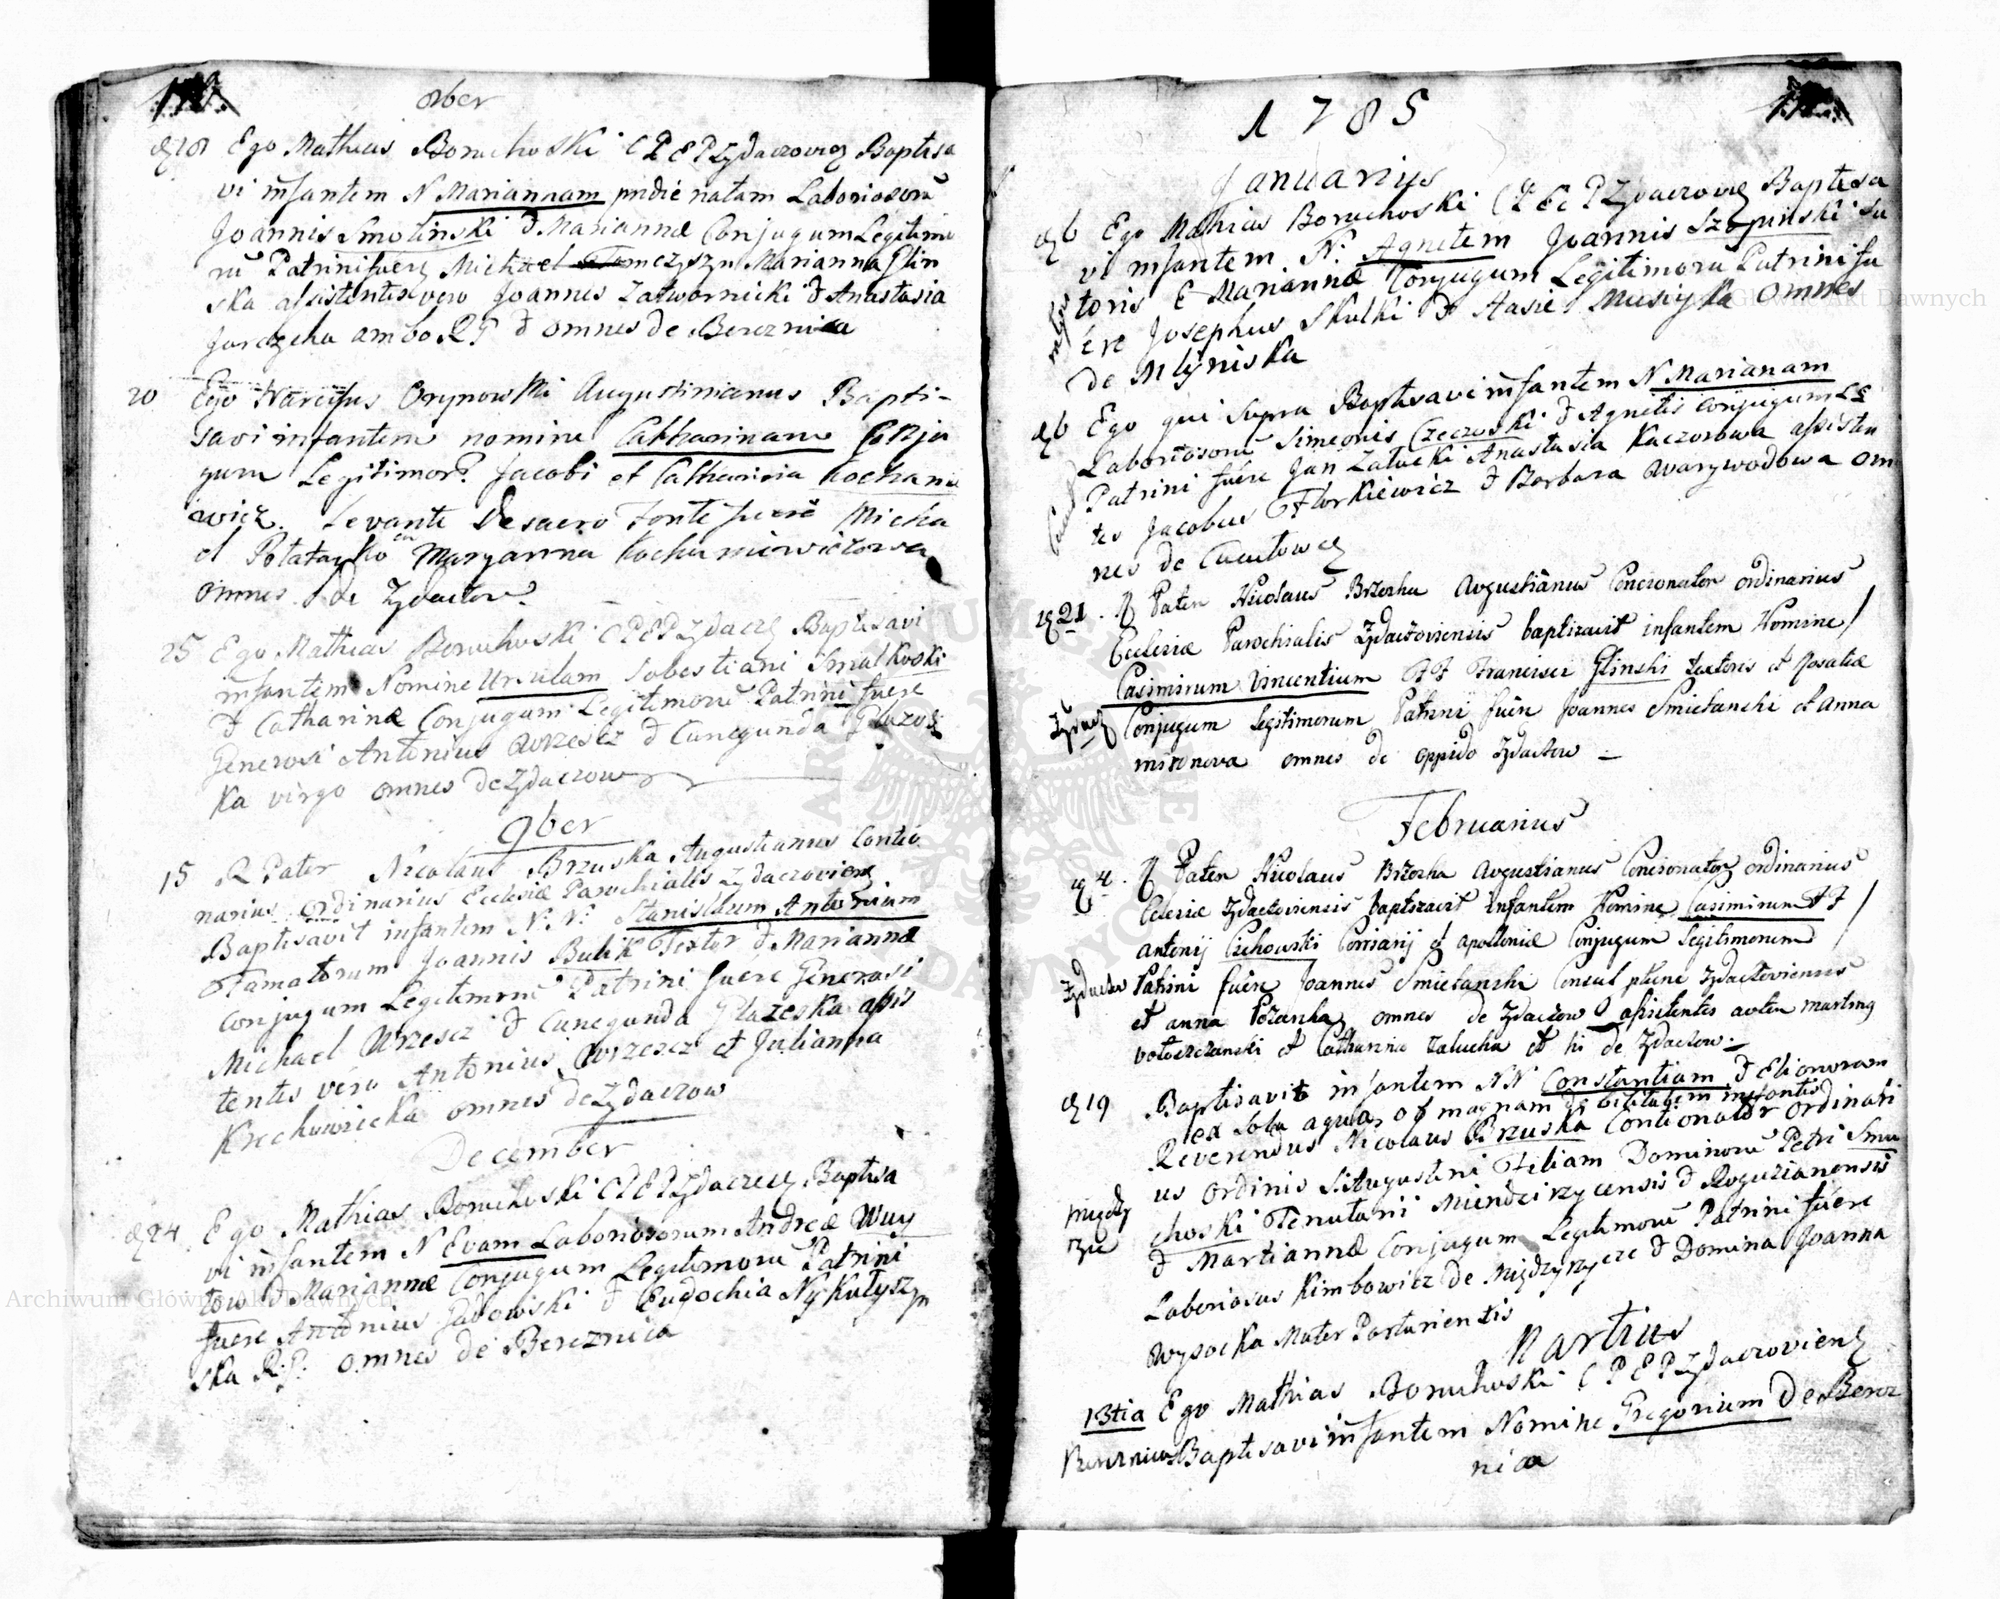 8ber
d 18 Ego Mathias Boruchoski C P E P Zydaczovien Baptisa
vi infantem N Mariannam pridie natam Laboriosorū
Joannis Smolinski & Mariannæ Conjugum Legitimo
rū Patrini fuere Michael Tomczyszyn Marianna Ilin
ska assistentes vero Joannes Zatwarnicki & Anastasia
ambo R G & omnes de Bereznica
20 Ego Narcisus Orynowski Augustinianus Bapti-
savi infantem nomine Catharinam Conju
gum Legitimor. Jacobi et Catharina Kochane
wicz. Levante De sacro Fonte fuere Micha
el Potatayko Maryanna Kochaniewiczowa
omnes de Zydaczow.
25 Ego Mathias Boruchoski C P E P Zydacz Baptisavi
infantem Nomine Ursulam Sabestiani Smalkoski
& Catharinæ Conjugum Legitimorū Patrini fuere
Generosi Antonius Wrzescz & Cunegunda Glazos
ka virgo omnes de Zydaczow
9ber
15 R Pater Nicolaus Brzuska Augustianus Contio
narius ordinarius Ecclesiæ Parochialis Zydaczovien
Baptisavit infantem N. N. Stanislaum Antonium
Famatorum Joannis Bulik Textor & Mariannæ
Conjugum Legitimorū Patrini fuere Generosi
Michael Wrzescz & Cunegunda Glazeska assis
tentes vero Antonius Wrzescz et Julianna
Krechowiecka omnes de Zydaczow
December
d 24 Ego Mathias Boruchoski C P E P Zydaczew Baptisa
vi infantem N Evam Laboriosorum Andreæ Wuy
tow & Mariannæ Conjugum Legitimorū Patrini
fuere Antonius Sadowski & Eudochia Nykolyszyn
ska R. G. omnes de Bereznica
1785
Januarius
d 6 Ego Mathias Boruchoski C P E P Zydaczovien Baptisa
vi infantem N. Agnetem Joannis Szepinski Su
toris & Mariannæ Conjugum Legitimorū Patrini fu
ere Josephus Skulki & Nasie Musiyka omnes
de Mlyniska
d 6 Ego qui supra Baptisavi infantem N Marianam
Laboriosorū Simeonis Czeczoski & Agnetis conjugum LE
Patrini fuere Jan Zalucki Anastasia Kaczorowa assisten
tes Jacobus Florkiewicz & Barbara Warywodowa om
nes de
d 21. R Pater Nicolaus Brzozka Augustianus Concionator ordinarius
Ecclesiæ Parochialis Zydaczoviensis baptizavit infantem Nomine
Casimirum Vincentium F F Francisci Glinski textoris et Rosaliæ
Zydacz Conjugum legitimorum Patrini fuere Joannes Smietanski et Anna
omnes de oppido Zydaczow
Februarius
d 4. R Pater Nicolaus Brzozka Augustianus Concionator ordinarius
Eclesiæ Zydaczoviensis baptizavit infantem Nomine Casimirum F F
antonij Cichowski et apolloniæ Conjugum legitimorum
Zydaczow Patrini fuere Joannes Smietanski Consul Zydaczoviensis
et anna omnes de Zydaczow assistentes autem martinus
Wołoszczanski et Catharina Zalucka et hi de Zydaczow
d 19 Baptisavit infantem N N Constantiam & Elionoram
ex sola aqua ob magnam debilitatem infantis
Reverendus Nicolaus Brzuska Contionator Ordinari
us Ordinis S. Augustini Filiam Dominorū Petri Smu
Między choski Tenutarii Miendzirzycensis & Roguzianensis
rzie & Martiannæ Conjugum Legitimorū Patrini fuere
Laboriosus Kimbowicz de Międzyrzycze & Domina Joanna
Wysocka Mater Parturientis
Martius
13tia Ego Mathias Boruchoski C P E P Zydaczovien
Bereznica Baptisavi infantem Nomine Gregorium De Berez
nica
Archiwum Główne Akt Dawnych
Archiwum Główne Akt Dawnych